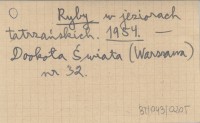 Ryby w jeziorach
tatrzańskich. 1954. —
Dookoła Świata (Warszawa)
nr 32.